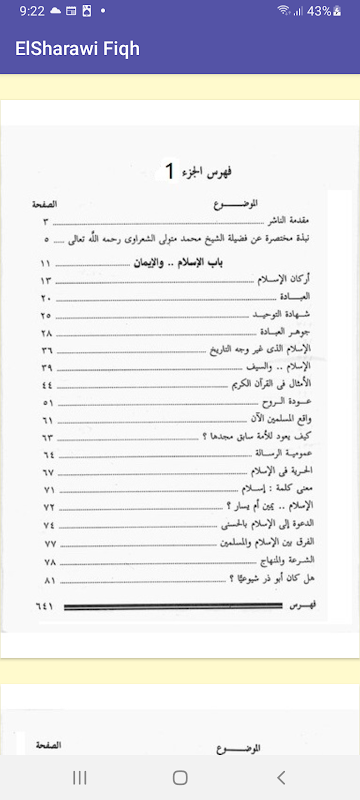 9:22
43%
ElSharawi Fiqh
فهرس الجزء 1
الموضـــــوع الصفحة
مقدمة الناشر ........ ٣
نبذة مختصرة عن فضيلة الشيخ محمد متولى الشعراوى رحمه الله تعالى ..... ٥
باب الإسلام .. والإيمان ........ ١١
أركان الإسـلام ........ ١٣
العبـادة ........ ٢٠
شـهادة التوحيـد ........ ٢٥
جوهـر العبـادة ........ ٢٨
الإسلام الذى غير وجه التاريخ ........ ٣٦
الإسـلام .. والسيف ........ ٣٩
الأمثال فى القرآن الكريم ........ ٤٤
عـودة الـروح ........ ٥١
واقع المسلمين الآن ........ ٦١
كيف يعود للأمة سابق مجدها ؟ ........ ٦٣
عموميـة الرسـالة ........ ٦٤
الحرية فى الإسلام ........ ٦٧
معنى كلمة : إسـلام ........ ٧١
الإسلام .. يمين أم يسار ؟ ........ ٧٢
الدعوة إلى الإسلام بالحسنى ........ ٧٤
الفرق بين الإسلام والمسلمين ........ ٧٧
الشـرعة والمنهاج ........ ٧٨
هل كان أبو ذر شيوعيًّا ؟ ........ ٨١
فهـرس ٦٤١
الموضـــــوع الصفحة